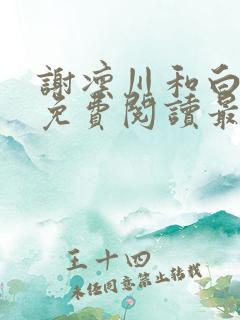 謝凜川和白
免費閱讀最
王十四
未經同意禁止轉載